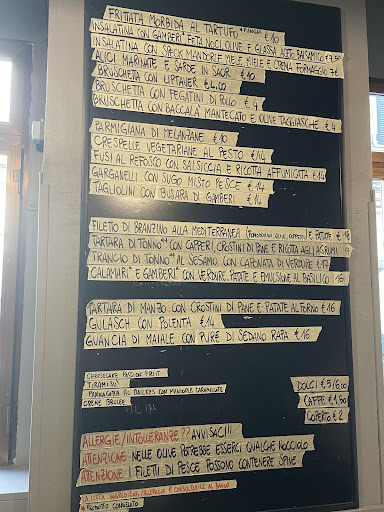 FRITTATA MORBIDA AL TARTUFO € 10
INSALATINA CON GAMBERI* FETA NOCI OLIVE E GLASSA ACETO BALSAMICO €7,50
INSALATINA CON SPECK MANDORLE, MELE, MIELE E CREMA FORMAGGIO 7€
ALICI MARINATE E SARDE IN SAOR € 10
BRUSCHETTA CON LIPTAUER € 4,00
BRUSCHETTA CON FEGATINI DI POLLO € 4
BRUSCHETTA CON BACCALA' MANTECATO E OLIVE TAGGIASCHE € 4
PARMIGIANA DI MELANZANE € 10
CRESPELLE VEGETARIANE AL PESTO € 14
FUSI AL REFOSCO CON SALSICCIA E RICOTTA AFFUMICATA € 14
GARGANELLI CON SUGO MISTO PESCE € 14
TAGLIOLINI CON BUSARA DI GAMBERI € 14
FILETTO DI BRANZINO ALLA MEDITERRANEA (POMODORINI OLIVE, CAPPERI) E PATATE € 18
TARTARA DI TONNO** CON CAPPERI, CROSTINI DI PANE E RICOTTA AGLI AGRUMI
TRANCIO DI TONNO** AL SESAMO CON CAPONATA DI VERDURE € 17
CALAMARI* E GAMBERI* CON VERDURE, PATATE E EMULSIONE AL BASILICO 16
TARTARA DI MANZO CON CROSTINI DI PANE E PATATE AL FORNO € 16
GULASCH CON POLENTA € 14
GUANCIA DI MAIALE CON PURE' DI SEDANO RAPA € 16
CHEESECAKE PASSION FRUIT
TIRAMISU'
PANNACOTTA AL BAILEYS CON MANDORLE CARAMELLATE
CREME BRULEE
DOLCI € 5/6,00
CAFFE € 1,50
COPERTO € 2
ALLERGIE/INTOLLERANZE?? AVVISACI!!!
ATTENZIONE: NELLE OLIVE POTREBBE ESSERCI QUALCHE NOCCIOLO
ATTENZIONE: I FILETTI DI PESCE POSSONO CONTENERE SPINE
LA LISTA INGREDIENTI/ALLERGENI E' CONSULTABILE AL BANCO
* PRODOTTO CONGELATO